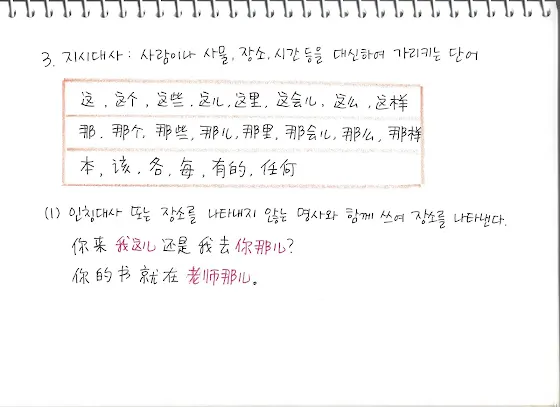 3. 지시대사 : 사람이나 사물, 장소, 시간 등을 대신하여 가리키는 단어
这, 这个, 这些, 这儿, 这里, 这会儿, 这么, 这样
那, 那个, 那些, 那儿, 那里, 那会儿, 那么, 那样
本, 该, 各, 每, 有的, 任何
(1) 인칭대사 또는 장소를 나타내지 않는 명사와 함께 쓰여 장소를 나타낸다.
你来 我这儿 还是 我去 你那儿?
你的书 就在 老师那儿。